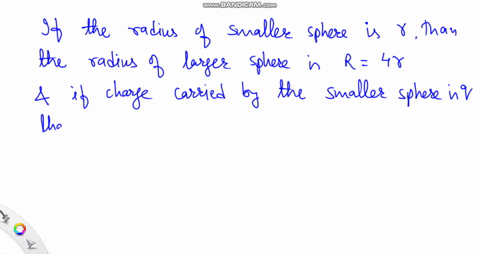 WWW.BANDICAM.COM
If the radius of smaller sphere is r, than
the radius of larger sphere is R = 4r
& if charge carried by the smaller sphere is q
tha